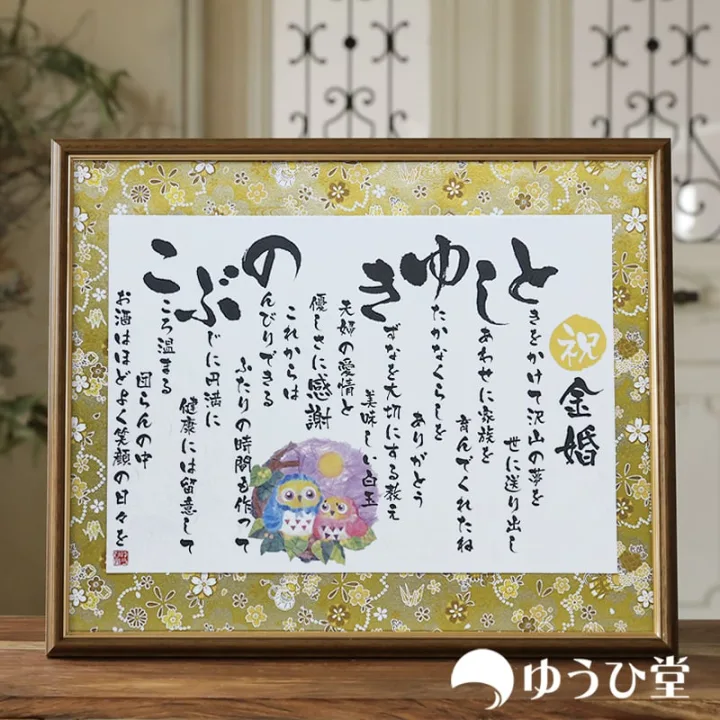 祝 金婚
ときをかけて沢山の夢を
世に送り出し
しあわせに家族を
育んでくれたね
ゆたかなくらしを
ありがとう
きずなを大切にする教え
美味しい白玉
夫婦の愛情と
優しさに感謝
これからは
のんびりできる
ふたりの時間も作って
ぶじに円満に
健康には留意して
こころ温まる
団らんの中
お酒はほどよく笑顔の日々を
ゆうひ堂